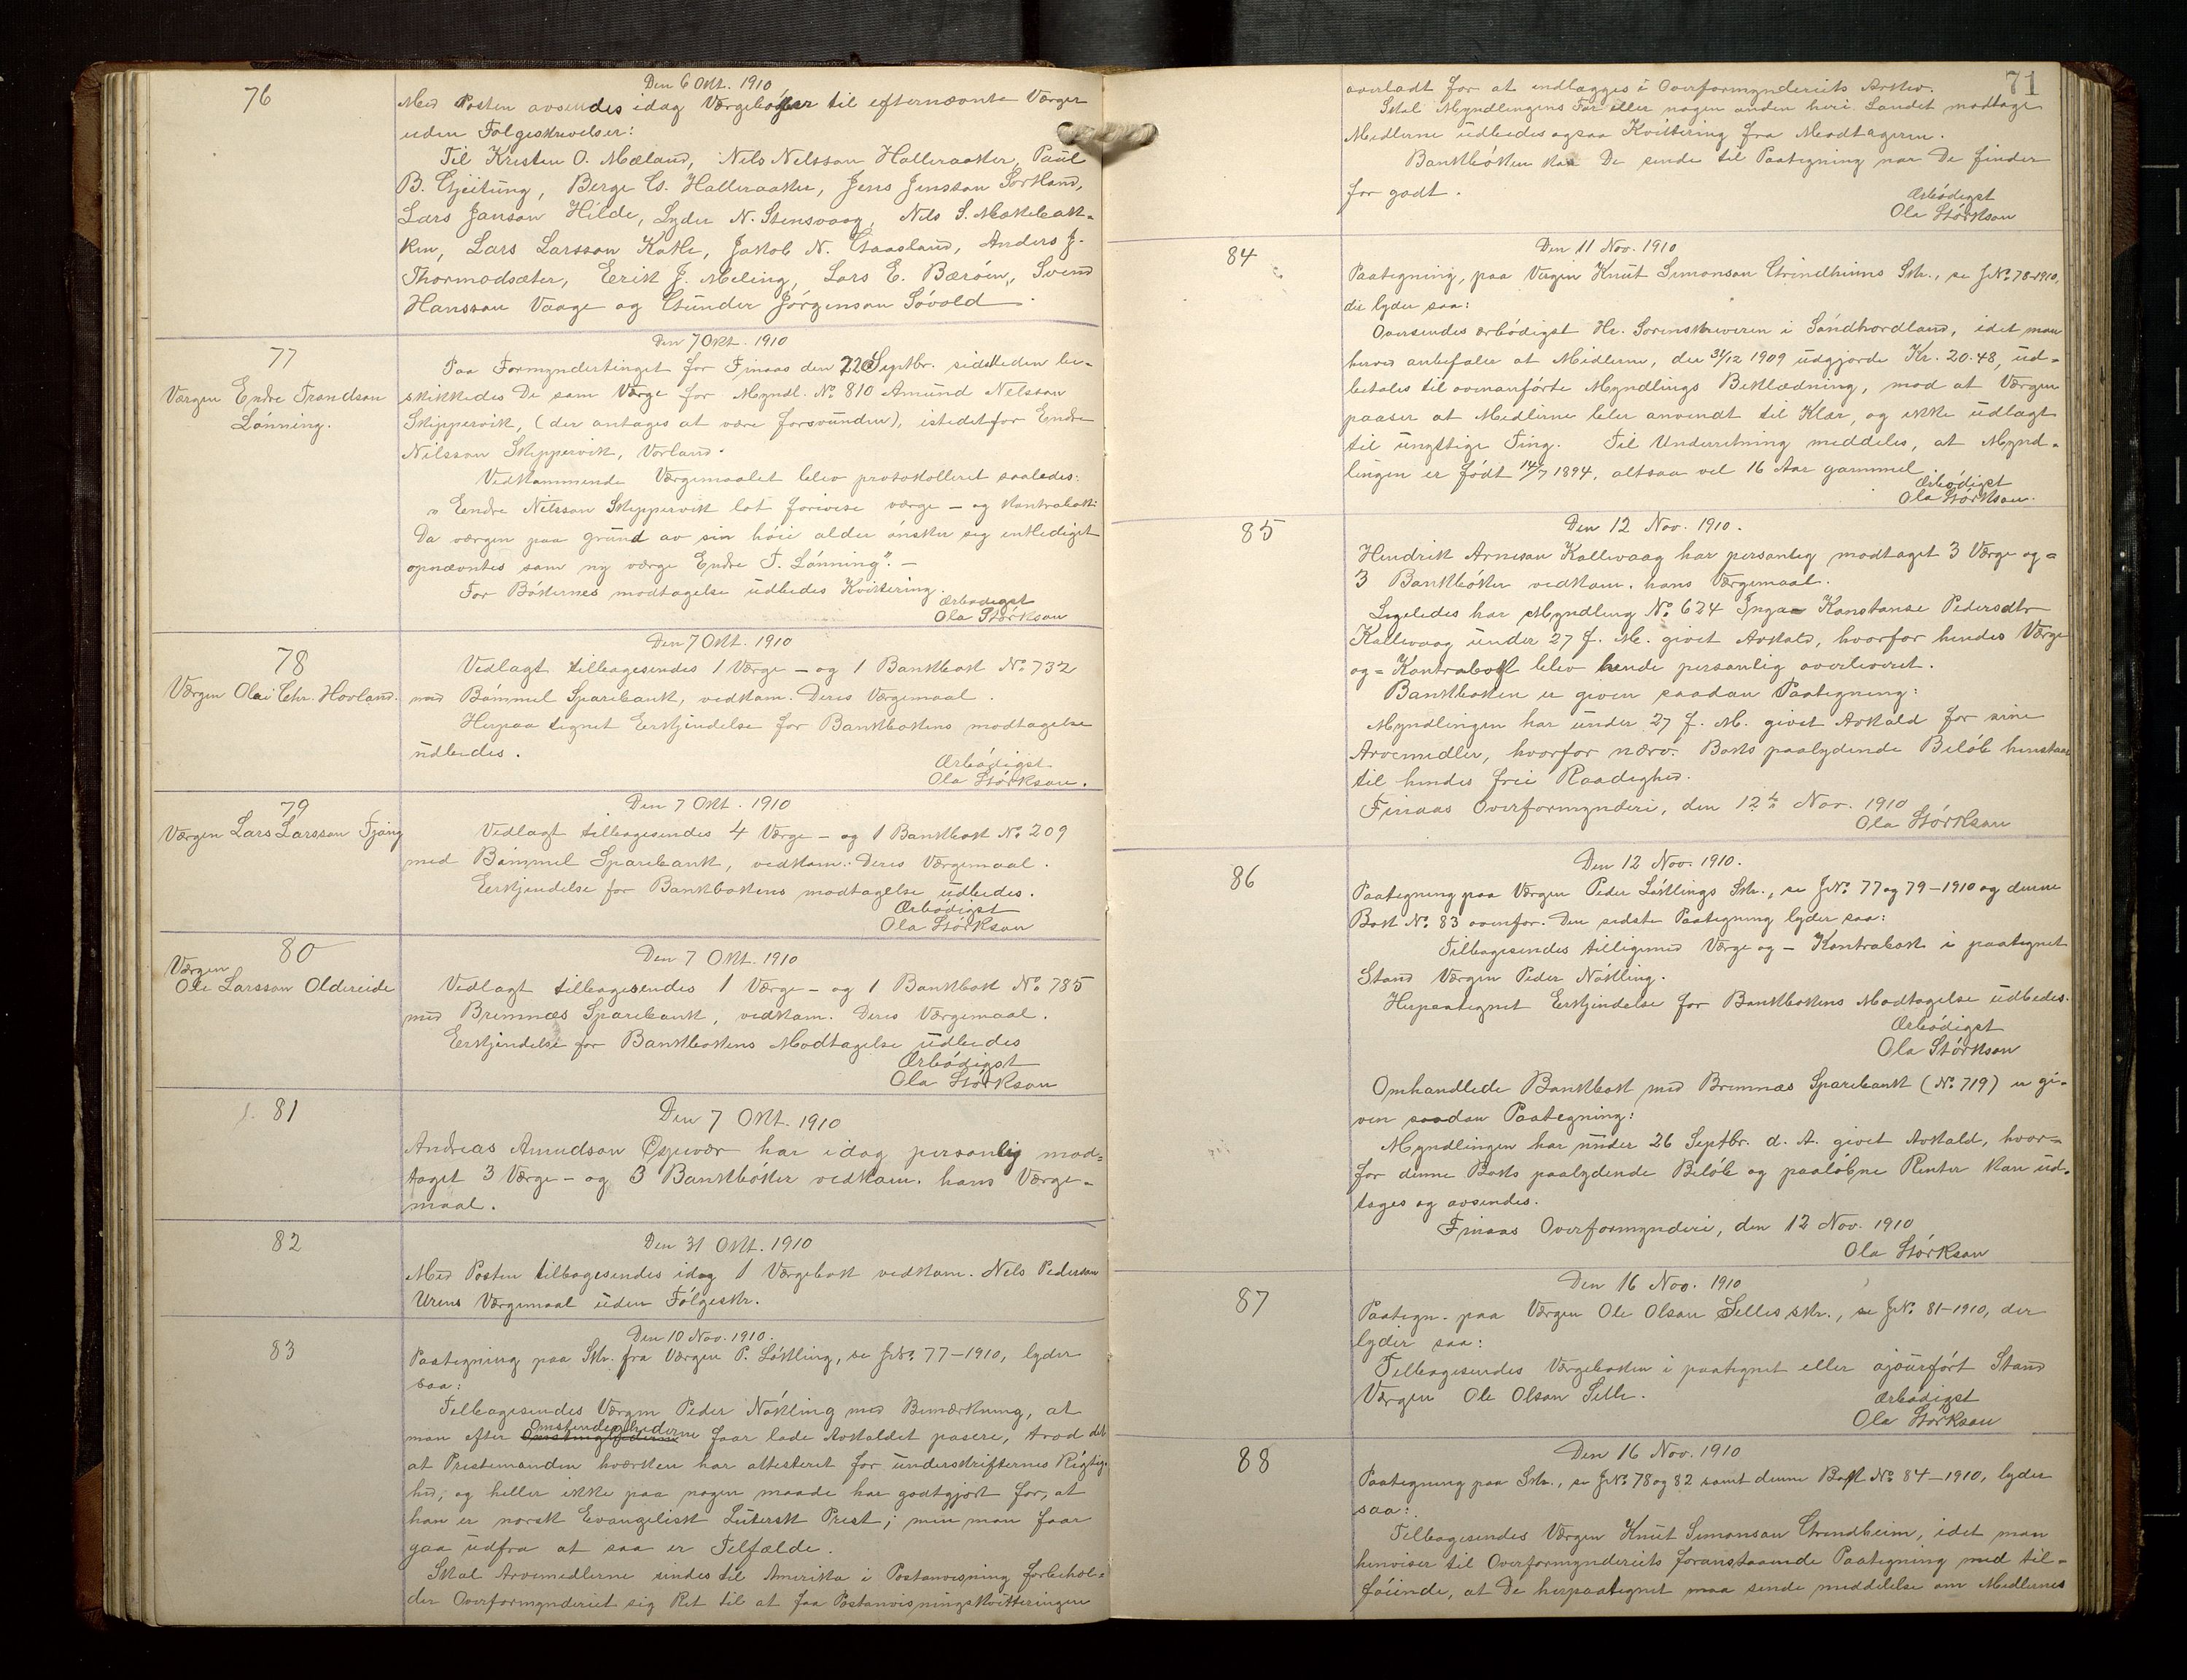 76
Den 6 Okt. 1910
Med Posten avsendes idag Værgebøker til efternævnte Værger
uden Følgeskrivelser:
Til Kristen O. Mæland, Nels Nelsson Halleraaker, Paul
B. Gjeitung, Berge Cs. Halleraaker, Jens Jensson Sortland,
Lars Janson Hilde, Lyder N. Stensvaag, Nils S. Mækebak-
ken, Lars Larsson Katle, Jakob N. Gaasland, Anders J.
Thormodsæter, Eerik J. Meling, Lars E. Bærøen, Svend
Hansson Vaage og Gunder Jørgenson Søvold.
77
Værgen Endre Trondson
Lønning.
Den 7 Okt. 1910
Paa Formyndertinget for Finaas den 22 Septbr. sidstleden be-
skikkedes De som Værge for Myndl. No 810 Amund Nelsson
Skippervik, (der antages at være forsvunden), istedetfor Endre
Nilsson Skippervik, Vorland.
Vedkommende Værgemaalet blev protokolleret saaledes:
"Eendre Nilsson Skippervik lot forevise værge - og kontrabok.
Da værgen paa grund av sin høie alder ønsker sig entlediget
opnævntes som ny værge Endre T. Lønning". -
For Bøkernes modtagelse udbedes Kvittering.
Ærbødigst
Ola Størkson
78
Værgen Olai Chr. Hovland.
Den 7 Okt. 1910
Vedlagt tilbagesendes 1 Værge - og 1 Bankbok No 732
med Bømmel Sparebank, vedkom. Deres Værgemaal.
Herpaa tegnet Eerkjendelse for Bankbokens modtagelse
udbedes.
Ærbødigst
Ola Størkson.
79
Værgen Lars Larsson Tjong
Den 7 Okt. 1910
Vedlagt tilbagesendes 4 Værge - og 1 Bankbok No 209
med Bømmel Sparebank, vedkom. Deres Værgemaal.
Eerkjendelse for Bankbokens modtagelse udbedes.
Ærbødigst
Ola Størkson
80
Værgen
Ole Larsson Oldereide
Den 7 Okt. 1910
Vedlagt tilbagesendes 1 Værge - og 1 Bankbok No 785
med Bremnæs Sparebank, vedkom. Deres Værgemaal.
Eerkjendelse for Bankbokens Modtagelse udbedes
Ærbødigst
Ola Størkson
81
Den 7 Okt. 1910
Andreas Amundson Espevær har idag personlig mod-
taget 3 Værge - og 3 Bankbøker vedkom. hans Værge-
maal.
82
Den 31 Okt. 1910
Med Posten tilbagesendes idag 1 Værgebok vedkom. Nels Pederson
Urens Værgemaal uden Følgeskr.
83
Den 10 Nov. 1910.
Paategning paa Skr. fra Værgen P. Løkling, se J.No. 77-1910, lyder
saa:
Tilbagesendes Værgen Peder Nøkling med Bemærkning, at
man efter Omstendighederne faar lade Avkaldet pasere, trod det
at Prestemanden hværken har attesteret for underskrifternes Rigtig-
hed, og heller ikke paa nogen maade har godtgjort for, at
han er norsk Evangelisk Lutersk Prest; men man faar
gaa udfra at saa er Tilfælde.
Skal Arvemidlerne sindes til Amerika i Postanvisning forbehol-
der Overformynderiet sig Ret til at faa Postanvisningskvitteringen
71
overladt for at indlægges i Overformynderiets Arkiv.
Skal Myndlingens Far eller nogen anden heri Landet modtage
Medlerne udbedes ogsaa Kvittering fra Modtageren.
Bankbøken kan De sende til Paategning nar De finder
for godt.
Ærbødigst
Ola Størkson
84
Den 11 Nov. 1910
Paategning, paa Værgen Knut Simonson Grindheims Skr., se J.No. 78-1910,
der lyder saa:
Oversendes ærbødigst Hr. Sorenskriveren i Søndhordland, idet man
herved anbefaler at Midlerne, der 31/12 1909 udgjorde Kr. 20.48, ud-
betales til ovenanførte Myndlings Beklædning, mod at Værgen
paaser at Medlerne blir anvendt til Klær, og ikke udlagt
til unyttige Ting. Til Underretning meddeles, at Mynd-
lingen er født 14/7 1894, altsaa vel 16 Aar gammel.
Ærbødigst
Ola Størkson.
85
Den 12 Nov. 1910.
Hendrik Arneson Kallevaag har personlig modtaget 3 Værge og-
3 Bankbøker vedkom. hans Værgemaal.
Ligeledes har Myndling No. 624 Inga Konstanse Pedersdtr
Kallevaag under 27 f. M. givet Avkald, hvorfor hendes Værge
og- Kontrabok blev hende personlig overleveret.
Bankboken er given saadan Paategning:
Myndlingen har under 27 f. M. givet Avkald for sine
Arvemidler, hvorfor nærv. Boks paalydende Beløb henstaar
til hendes frie Raadighed.
Finaas Overformynderi, den 12te Nov. 1910
Ola Størkson
86
Den 12 Nov. 1910.
Paategning paa Værgen Peder Løklings Skr., se J.No. 77 og 79-1910 og denne
Bok No. 83 ovenfor. Den sidste Paategning lyder saa:
Tilbagesendes tilligemed Værge og - Kontrabok i paategnet
Stand Værgen Peder Nøkling.
Herpaategnet Eerkjendelse for Bankbokens Modtagelse udbedes.
Ærbødigst
Ola Størkson
Omhandlede Bankbok med Bremnæs Sparebank (No. 719) er gi-
ven saadan Paategning:
Myndlingen har under 26 Septbr. d. A. givet Avkald, hvor-
for denne Boks paalydende Beløb og paaløbne Renter kan ud-
tages og avsendes.
Finaas Overformynderi, den 12 Nov. 1910
Ola Størkson
87
Den 16 Nov. 1910
Paategn. paa Værgen Ole Olson Selles skr., se J.No. 81-1910, der
lyder saa:
Tilbagesendes Værgeboken i paategnet eller ajourført Stand
Værgen Ole Olson Selle.
Ærbødigst
Ola Størkson
88
Den 16 Nov. 1910
Paategning paa Skr., se J.No. 78 og 82 samt denne Bok No. 84-1910, lyder
saa:
Tilbagesendes Værgen Knut Simonson Grindheim, idet man
henviser til Overformynderiets foranstaaende Paategning med til-
føiende, at De herpaategnet maa sende meddelelse om Medlernes